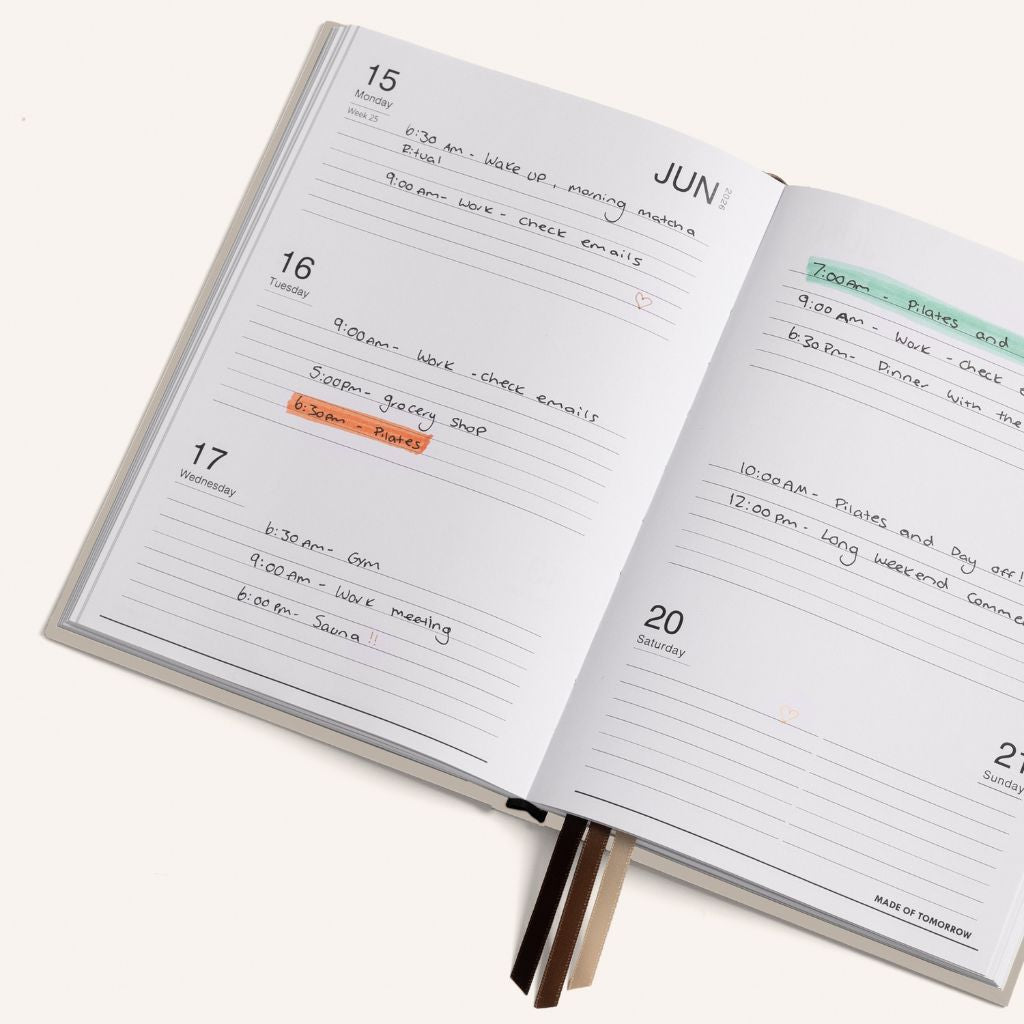 15
Monday
Week 25
JUN
2026
6:30 Am - Wake up, morning matcha
Ritual
9:00 Am - Work - Check emails
16
Tuesday
9:00 Am - Work - check emails
5:00pm - grocery shop
6:30pm - Pilates
17
Wednesday
6:30 Am - Gym
9:00 Am - Work meeting
6:00 pm - Sauna !!
7:00 Am - Pilates and
9:00 Am - Work - check
6:30 Pm - Dinner With the
10:00 AM - Pilates and Day off!
12:00 pm - Long weekend
20
Saturday
21
Sunday
MADE OF TOMORROW